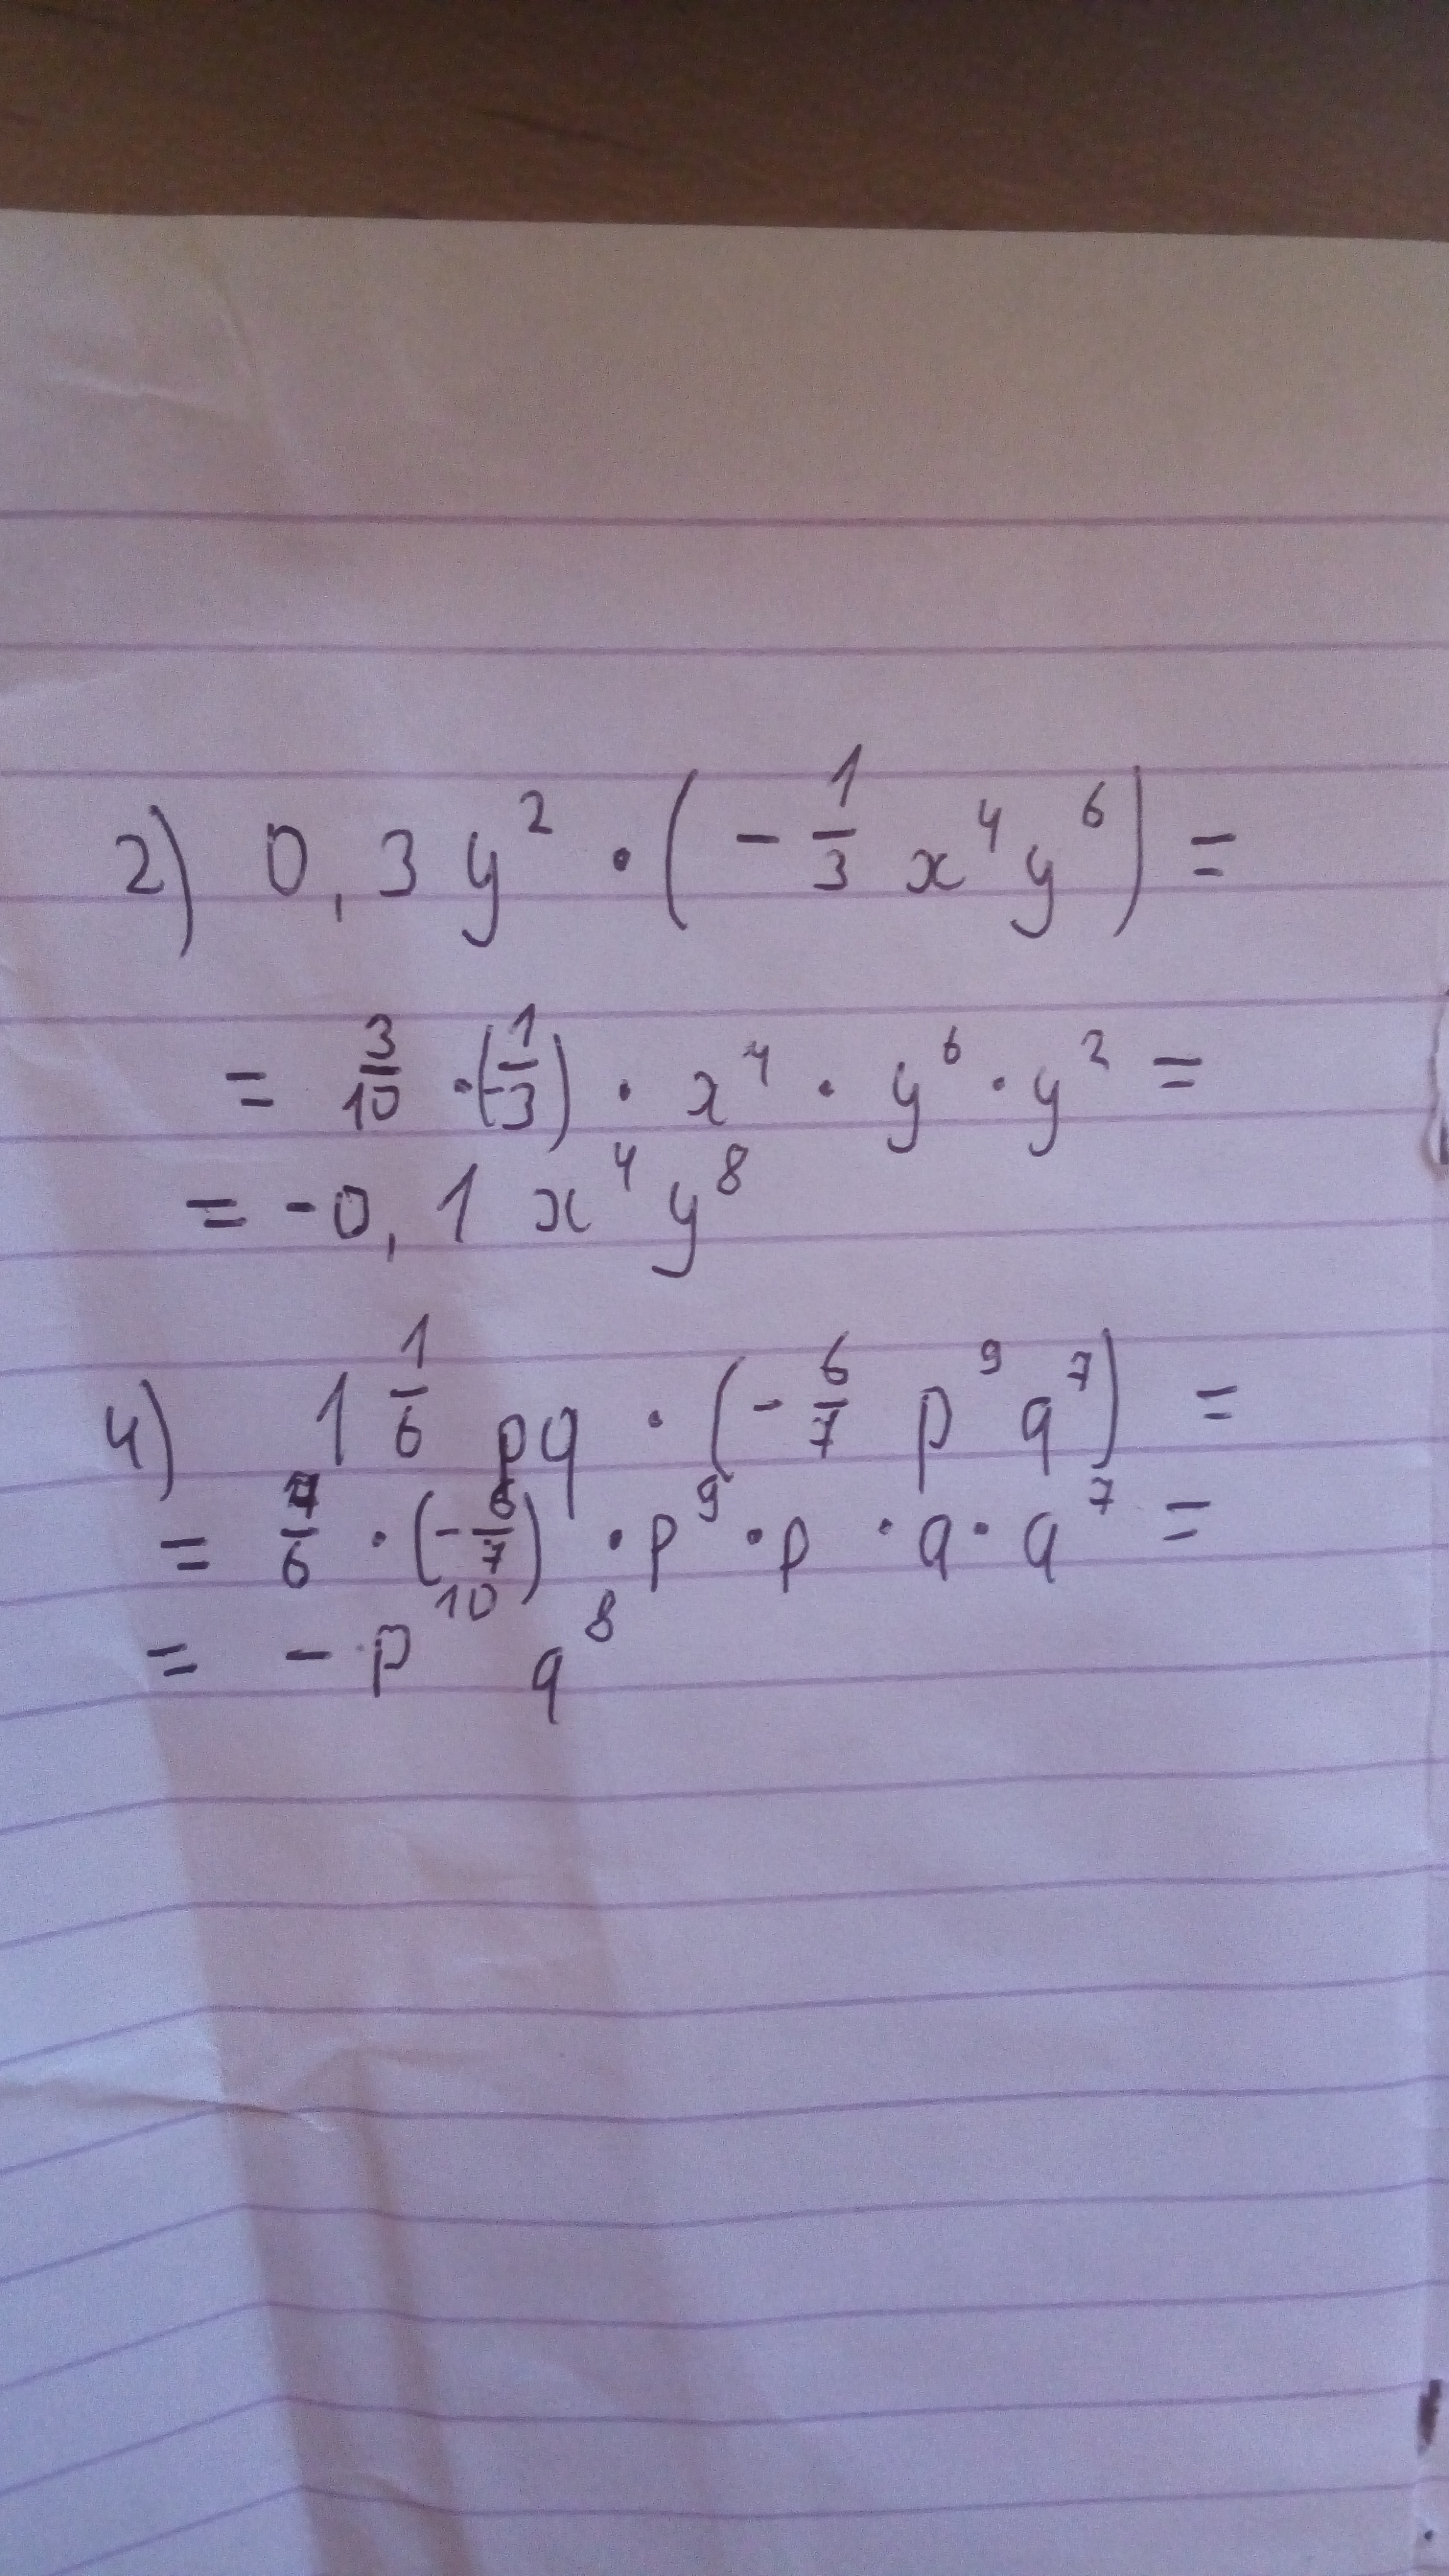 2) 0,3 y² · (- 1/3 x⁴ y⁶) =
= 3/10 · (- 1/3) · x⁴ · y⁶ · y² =
= -0,1 x⁴ y⁸
4) 1 1/6 pq · (- 6/7 p⁹ q⁷) =
= 7/6 · (- 6/7) · p⁹ · p · q · q⁷ =
= - p¹⁰ q⁸